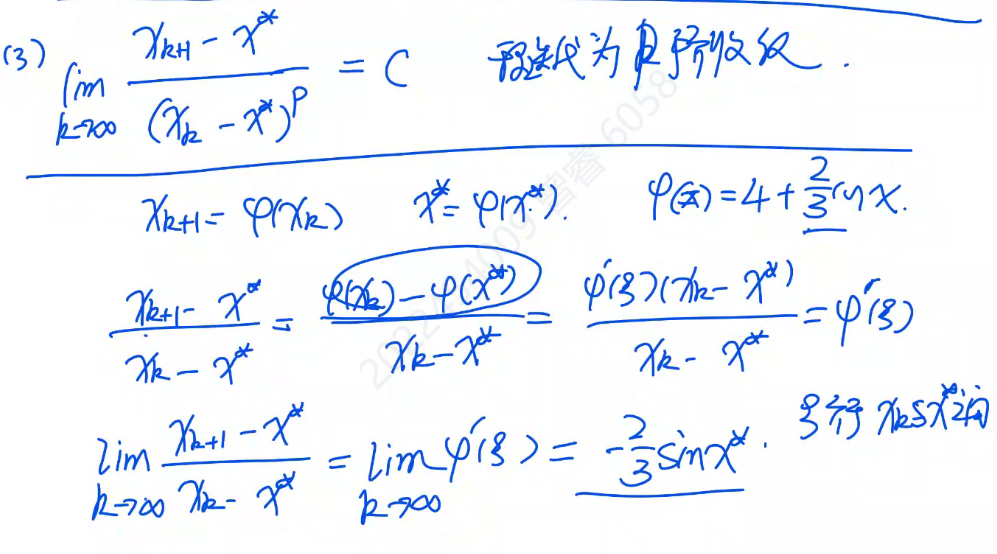 (3) lim_{k→∞} \frac{x_{k+1} - x^*}{(x_k - x^*)^p} = C 那迭代为p阶收敛.
x_{k+1} = φ(x_k) x^* = φ(x^*). φ(x) = 4 + \frac{2}{3}cos x.
\frac{x_{k+1} - x^*}{x_k - x^*} = \frac{φ(x_k) - φ(x^*)}{x_k - x^*} = \frac{φ'(ξ)(x_k - x^*)}{x_k - x^*} = φ'(ξ)
lim_{k→∞} \frac{x_{k+1} - x^*}{x_k - x^*} = lim_{k→∞} φ'(ξ) = -\frac{2}{3}sin x^*. ξ介于 x_k与x^*之间